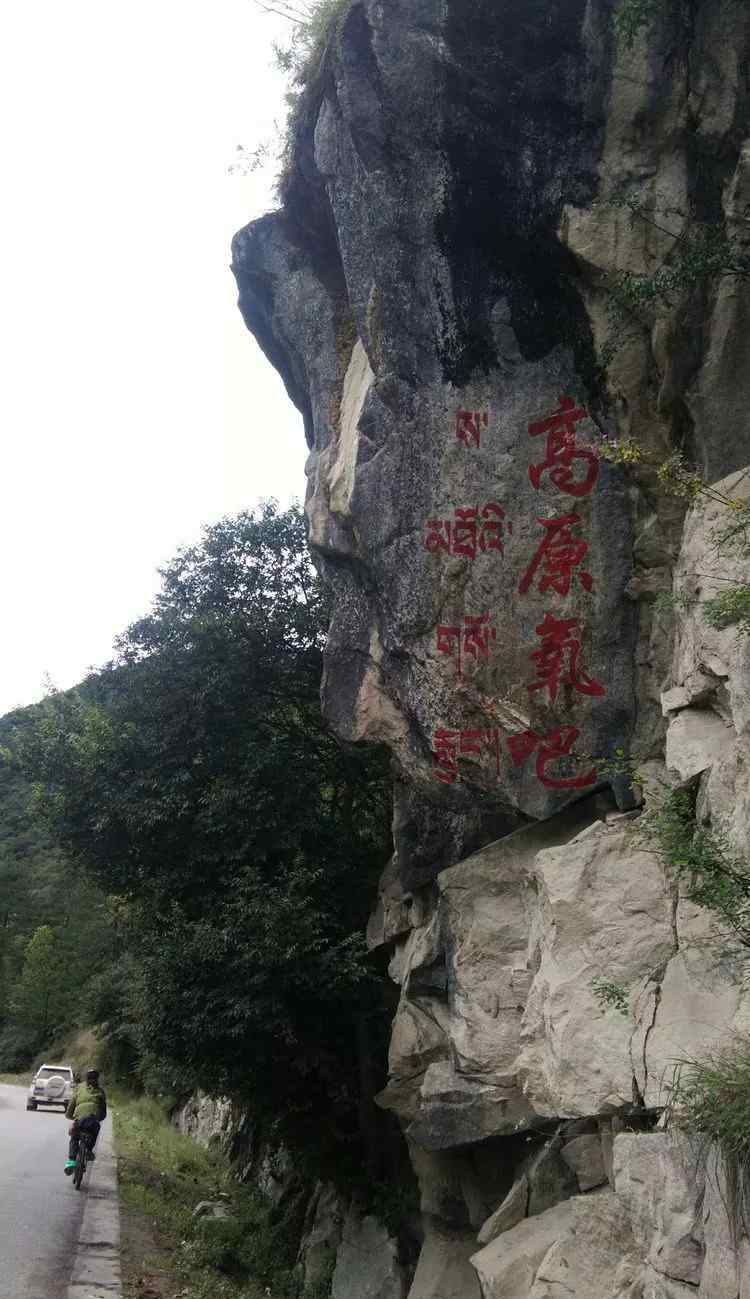 高原氧吧
ས་
མཐོའི་
གསོ་